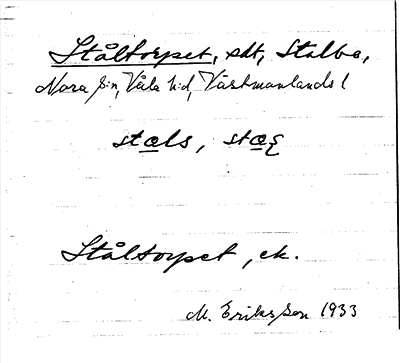 Ståltorpet, sdt, Stalbo,
Nora s:n, Våla h:d, Västmanlands l
Ståltorpet, ek.
M. Eriksson 1933